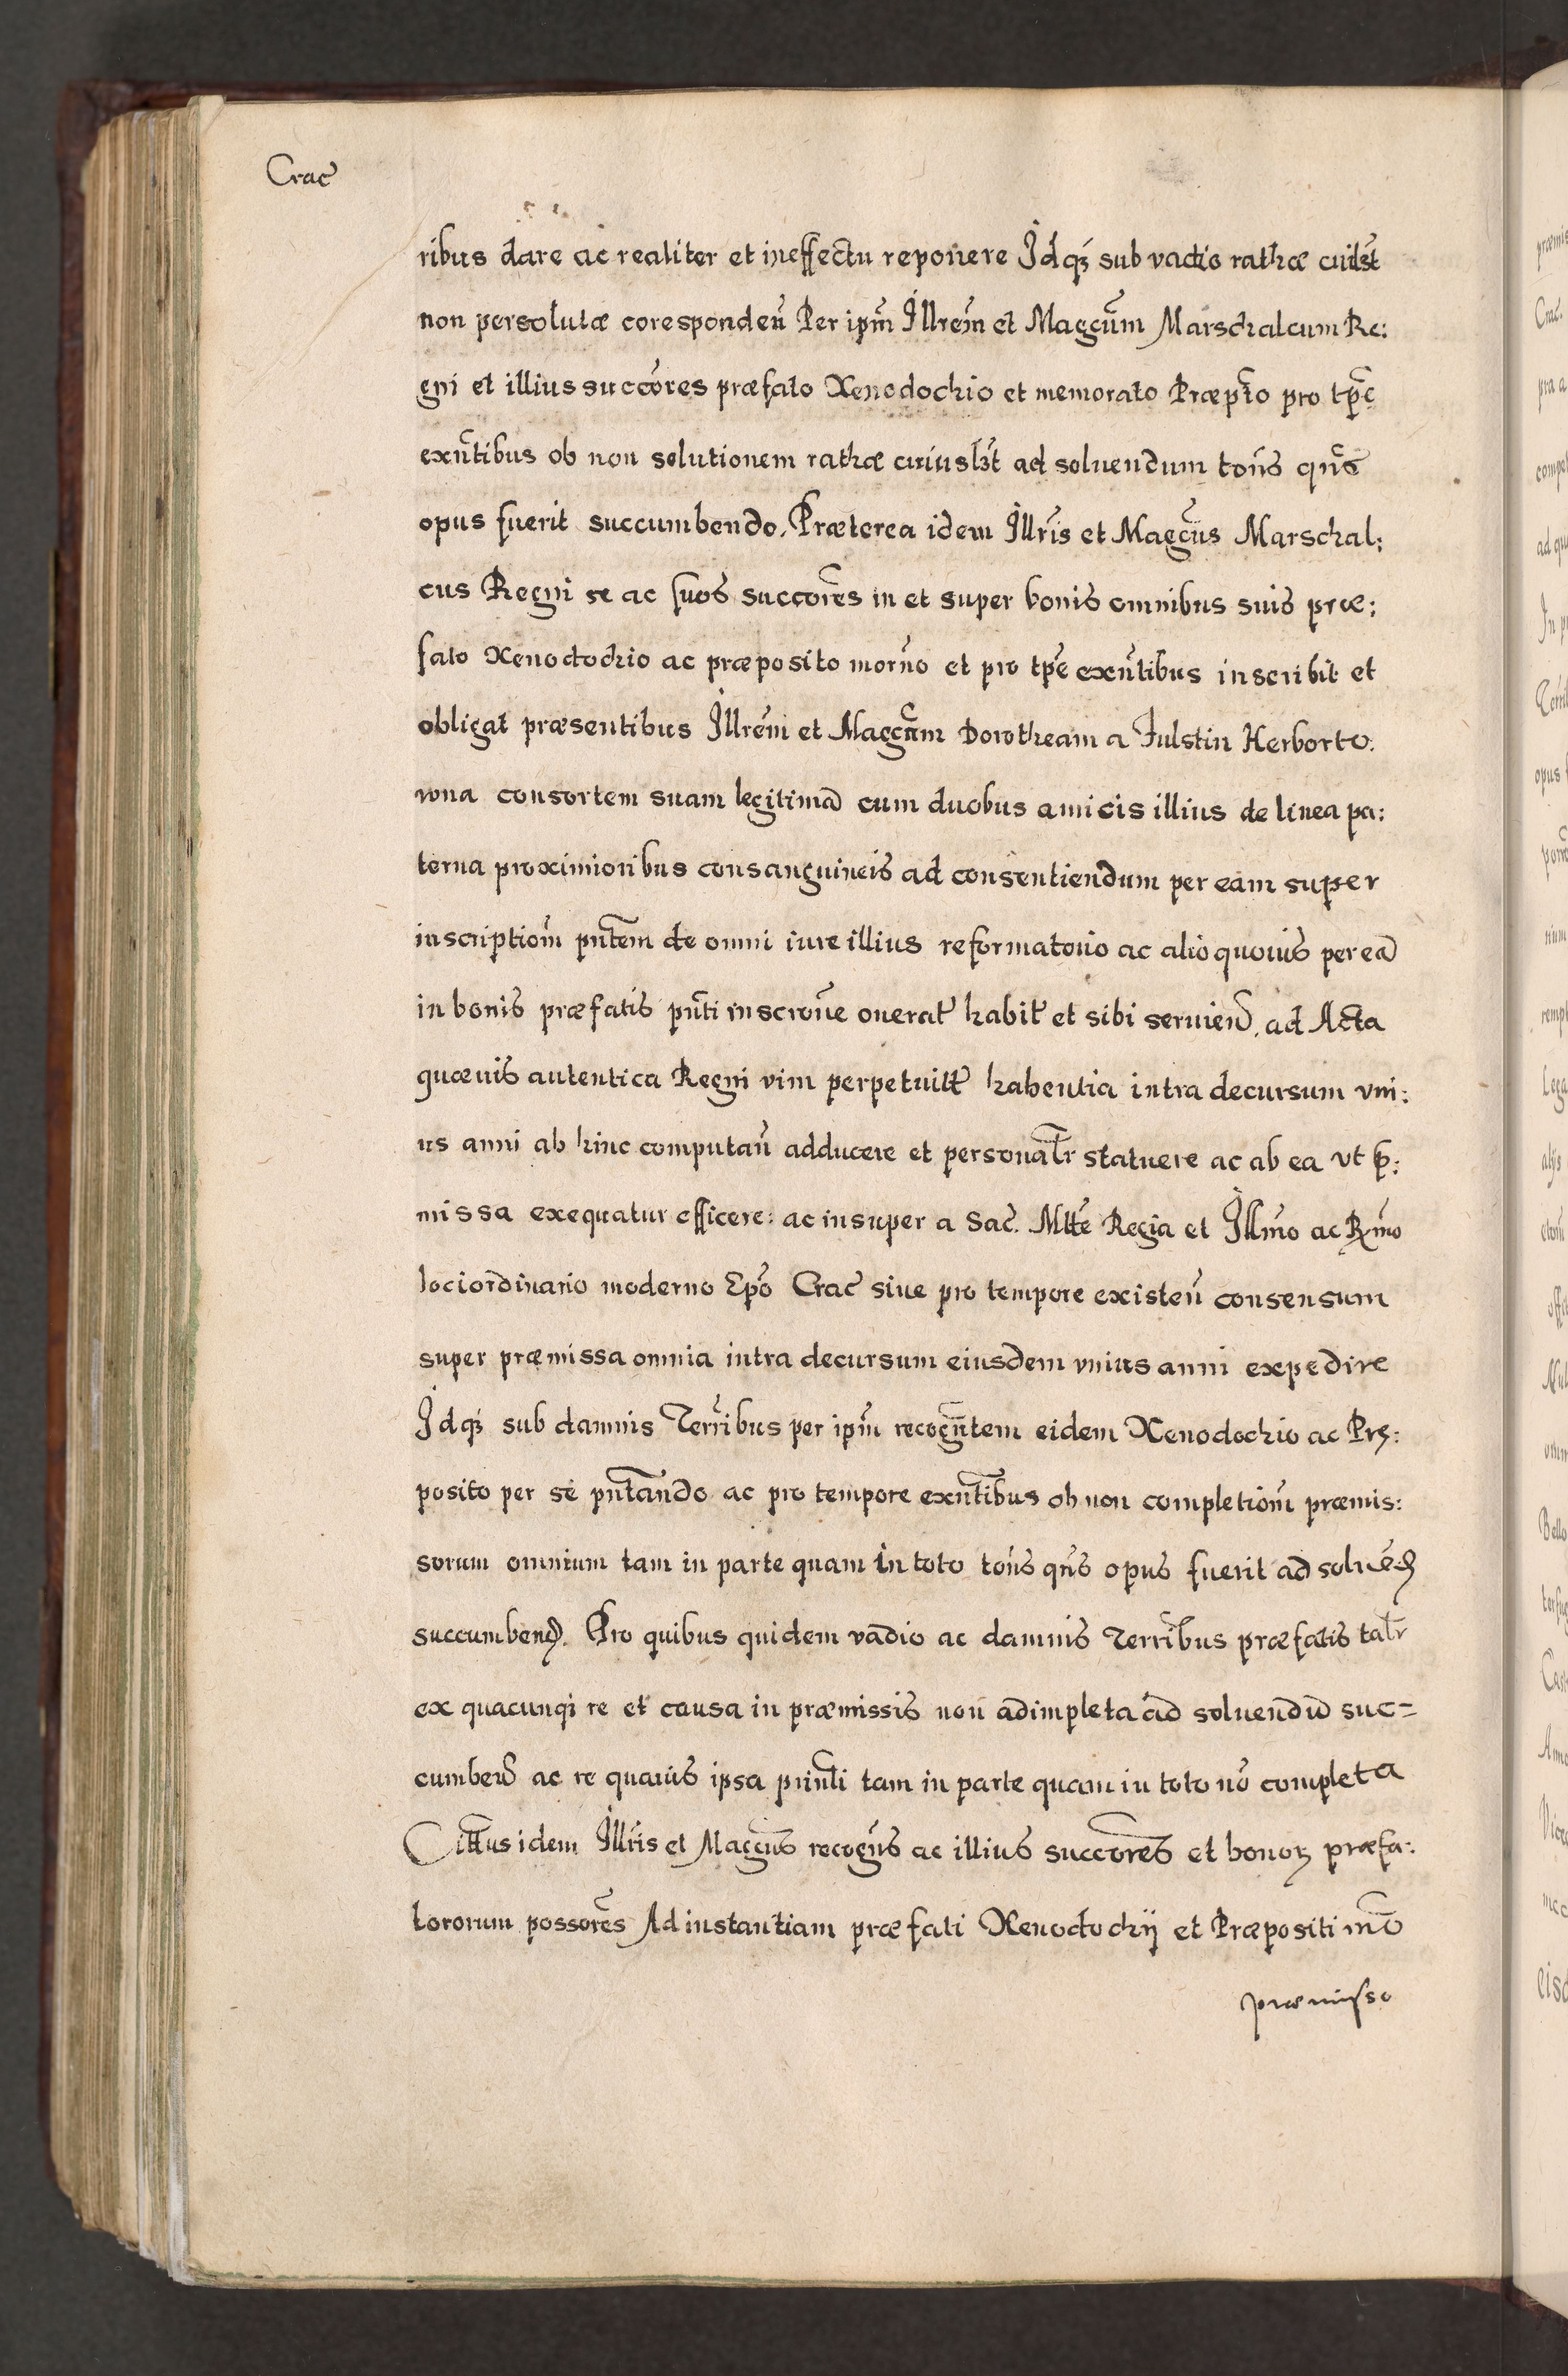 Crac̃
ribus dare ac realiter et in effectu reponere Idqꝫ sub vadio rathæ cuilꝫt
non persolutæ coresponden̄ Per ipm̃ Illrem̃ et Magcũm Marschalcum Re:
gni et illius succõres præfato Xenodochio et memorato Præpt̃o pro tp̃e
exñtibus ob non solutionem rathæ cuiuslꝫt ad soluendum tom̃s qm̃s
opus fuerit succumbendo. Præterea idem Illrĩs et Magcũs Marschal:
cus Regni se ac suos succorẽs in et super bonis omnibus suis præ:
fato Xenodochio ac præposito morño et pro tp̃e exñtibus inscribit et
obligat præsentibus Illrem̃ et Magcãm Dorotheam a Fulstin Herborto.
wna consortem suam legitimã cum duobus amicis illius de linea pa:
terna proximioribus consanguineis ad consentiendum per eam super
inscriptiom̃ pñtem de omni iure illius reformatorio ac alio quouis per eã
in bonis præfatis pñti inscrone onerat̃ habit̃ et sibi seruien̄. ad Acta
quæuis autentica Regni vim perpetuitt̃ habentia intra decursum vni:
us anni ab hinc computan̄ adducere et personalr̃ statuere ac ab ea vt p̃:
missa exequatur efficere: ac insuper a Sac̃. Mtt̃e Regia et Illm̃o ac Rm̃o
loci ordinario moderno Ep̃o Crac̃ siue pro tempore existen̄ consensum
super præmissa omnia intra decursum eiusdem vnius anni expedire
Idqꝫ sub damnis Terrĩbus per ipm̃ recogñtem eidem Xenodochio ac Prę:
posito per se pñtando ac pro tempore exñtibus ob non completiom̃ præmis:
sorum omnium tam in parte quam in toto tom̃s qm̃s opus fuerit ad soluẽd
succumbend. Pro quibus quidem vadio ac damnis Terrĩbus præfatis talr̃
ex quacunqꝫ re et causa in præmissis non adimpleta ad soluendũ suc=
cumben̄ ac re quauis ipsa pñti tam in parte quam in toto nõ completa
Citt̃us idem Illrĩs et Magcũs recogñs ac illius succorẽs et bonoꝝ præfa:
tororum possorẽs Ad instantiam præfati Xenodochij et Præpositi mõ
præmisso